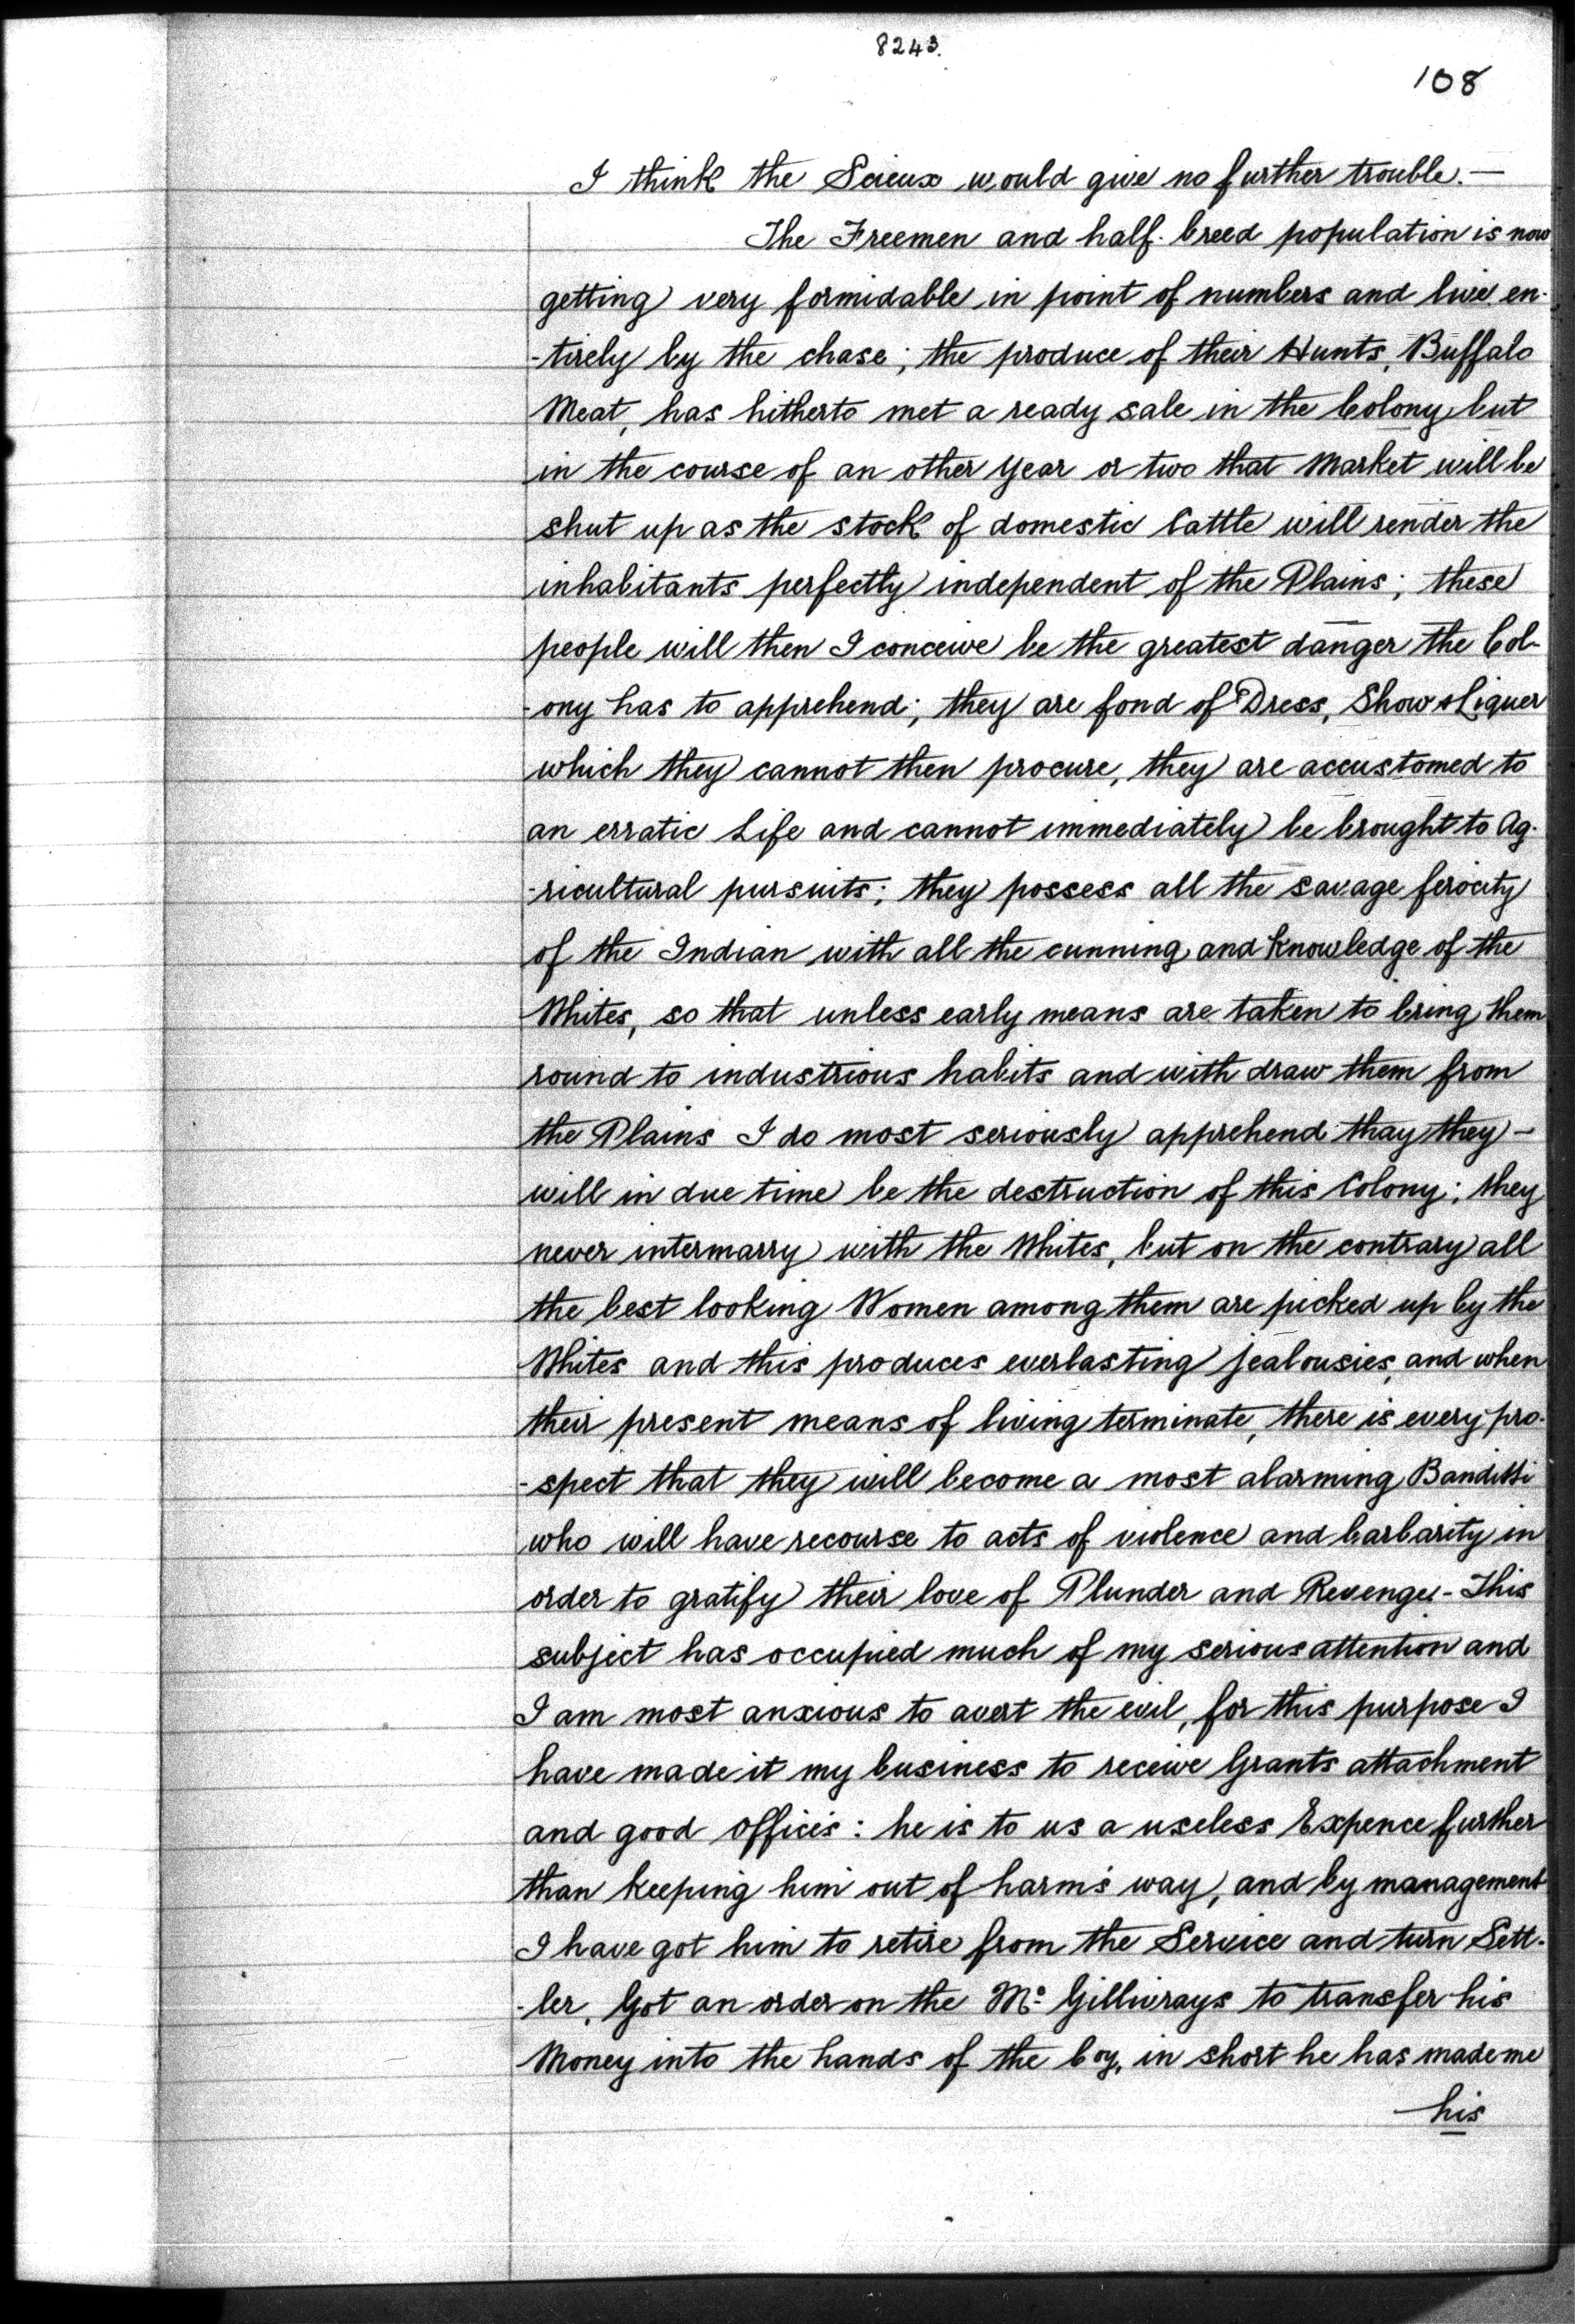 8243.
108
I think the Scieux would give no further trouble.—
The Freemen and half-breed population is now
getting very formidable in point of numbers and live en-
-tirely by the chase; the produce of their Hunts, Buffalo
Meat, has hitherto met a ready sale in the Colony, but
in the course of an other year or two that Market will be
shut up as the stock of domestic Cattle will render the
inhabitants perfectly independent of the Plains; these
people will then I conceive be the greatest danger the Col-
-ony has to apprehend; they are fond of Dress, Show & Liquer
which they cannot then procure, they are accustomed to
an erratic Life and cannot immediately be brought to Ag-
-ricultural pursuits; they possess all the savage ferocity
of the Indian with all the cunning and knowledge of the
Whites, so that unless early means are taken to bring them
round to industrious habits and with draw them from
the Plains I do most seriously apprehend thay they -
will in due time be the destruction of this Colony; they
never intermarry with the Whites, but on the contrary all
the best looking Women among them are picked up by the
Whites and this produces everlasting jealousies, and when
their present means of living terminate, there is every pro-
-spect that they will become a most alarming Banditti
who will have recourse to acts of violence and barbarity in
order to gratify their love of Plunder and Revenge.- This
subject has occupied much of my serious attention and
I am most anxious to avert the evil, for this purpose I
have made it my business to receive Grants attachment
and good offices: he is to us a useless Expence further
than keeping him out of harm's way, and by management
I have got him to retire from the Service and turn Sett-
-ler, Got an order on the Mc Gillivrays to transfer his
Money into the hands of the Coy, in short he has made me
his